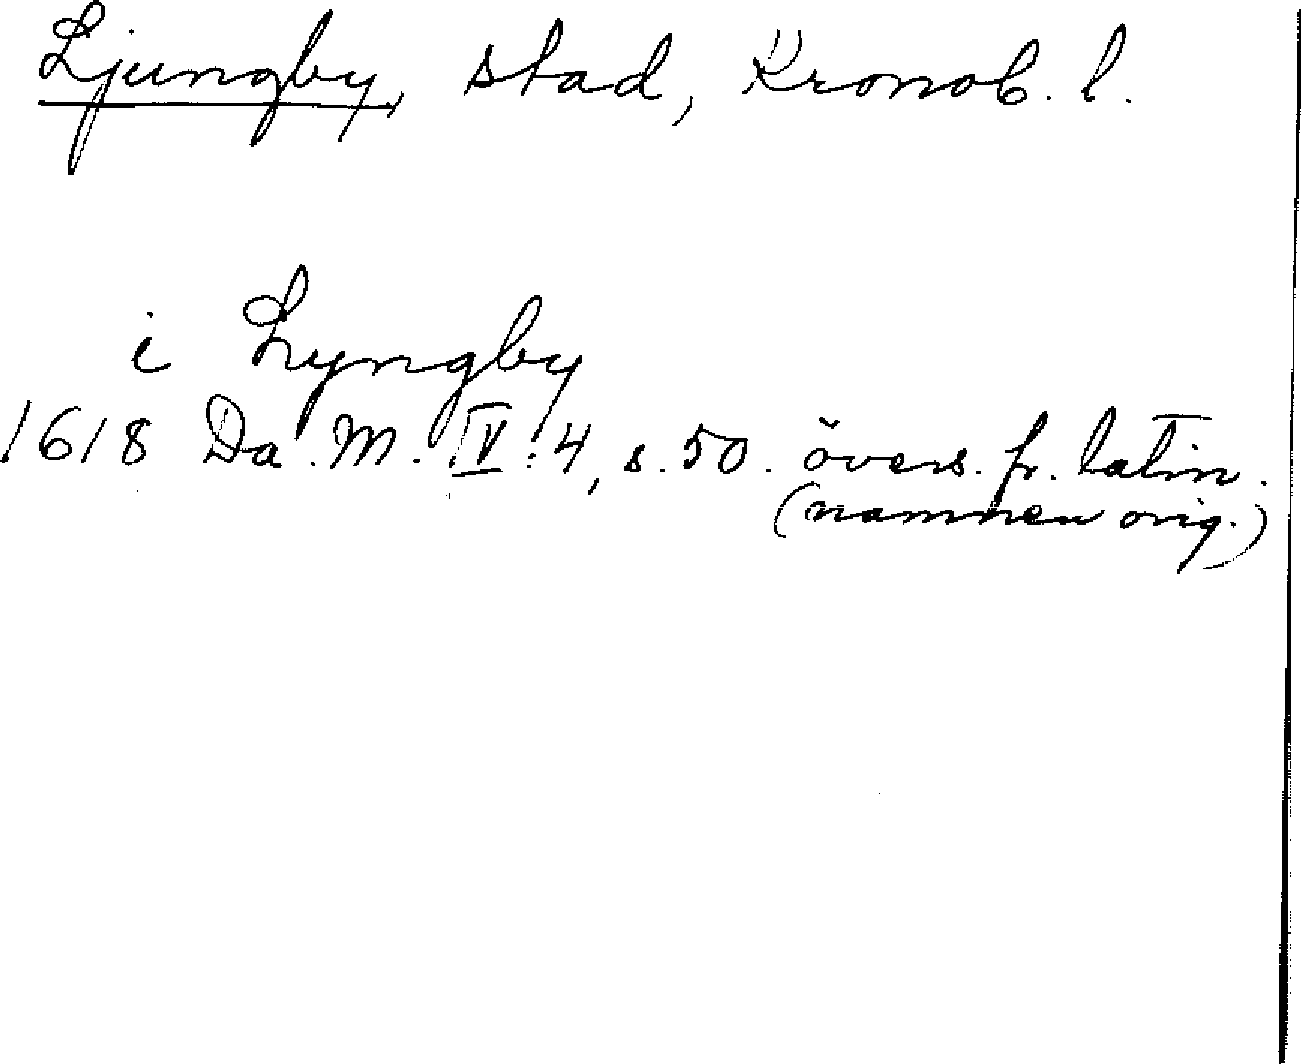 Ljungby, stad, Kronob. l.
i Lyngby
1618 Da. M. IV: 4, s. 50. övers. fr. latin.
(namnen orig.)